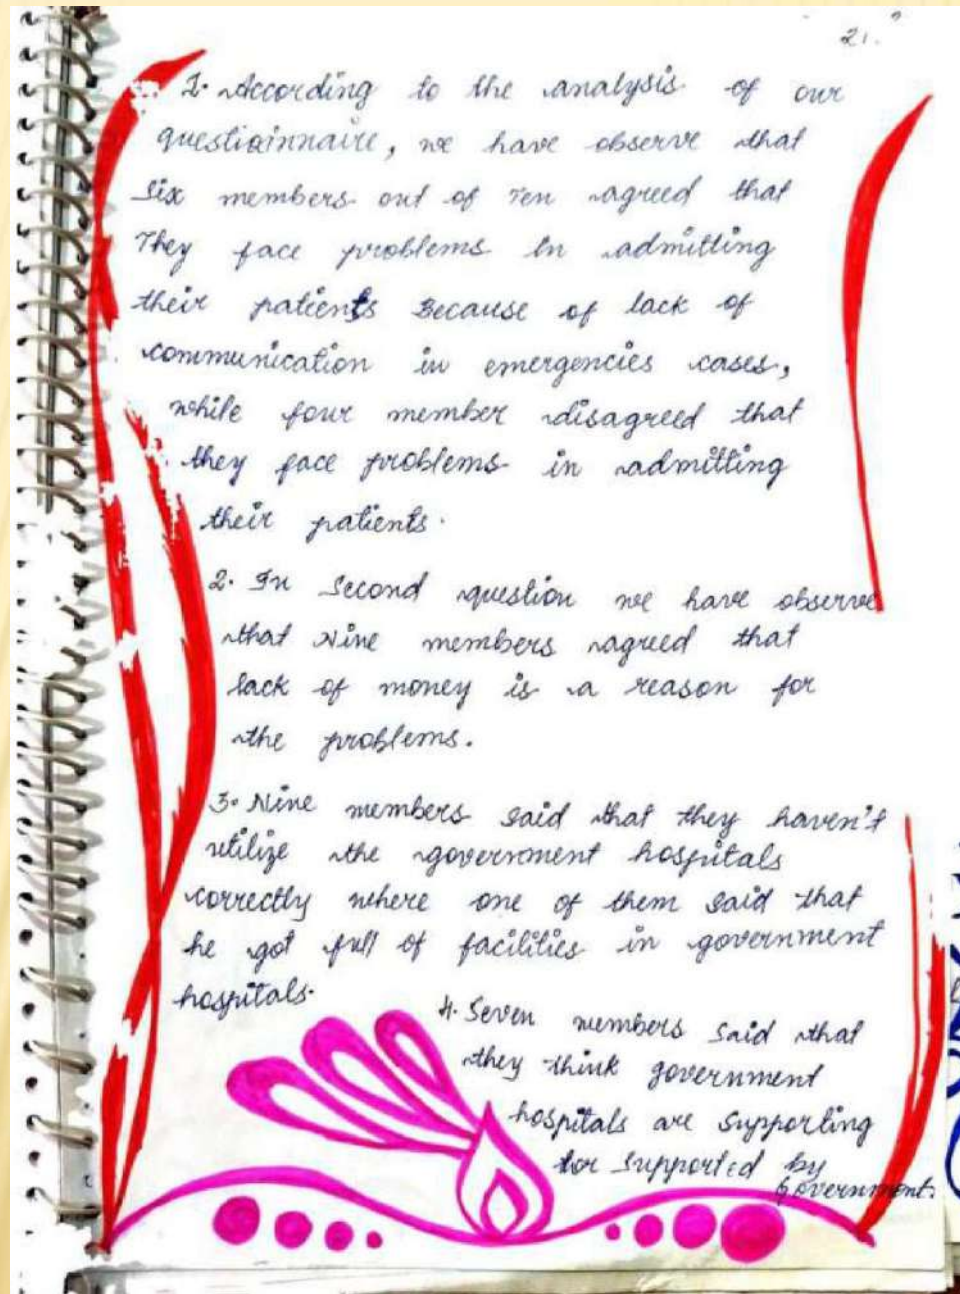 21.
1. According to the analysis of our
questioinnaire, we have observe that
Six members out of Ten agreed that
They face problems in admitting
their patients Because of lack of
communication in emergencies cases,
while four member disagreed that
they face problems in admitting
their patients.
2. In Second question we have observe
that Nine members agreed that
lack of money is a reason for
the problems.
3. Nine members said that they haven't
utilize the government hospitals
correctly where one of them said that
he got full of facilities in government
hospitals.
4. Seven members said that
they think government
hospitals are supporting
supported by
Government.